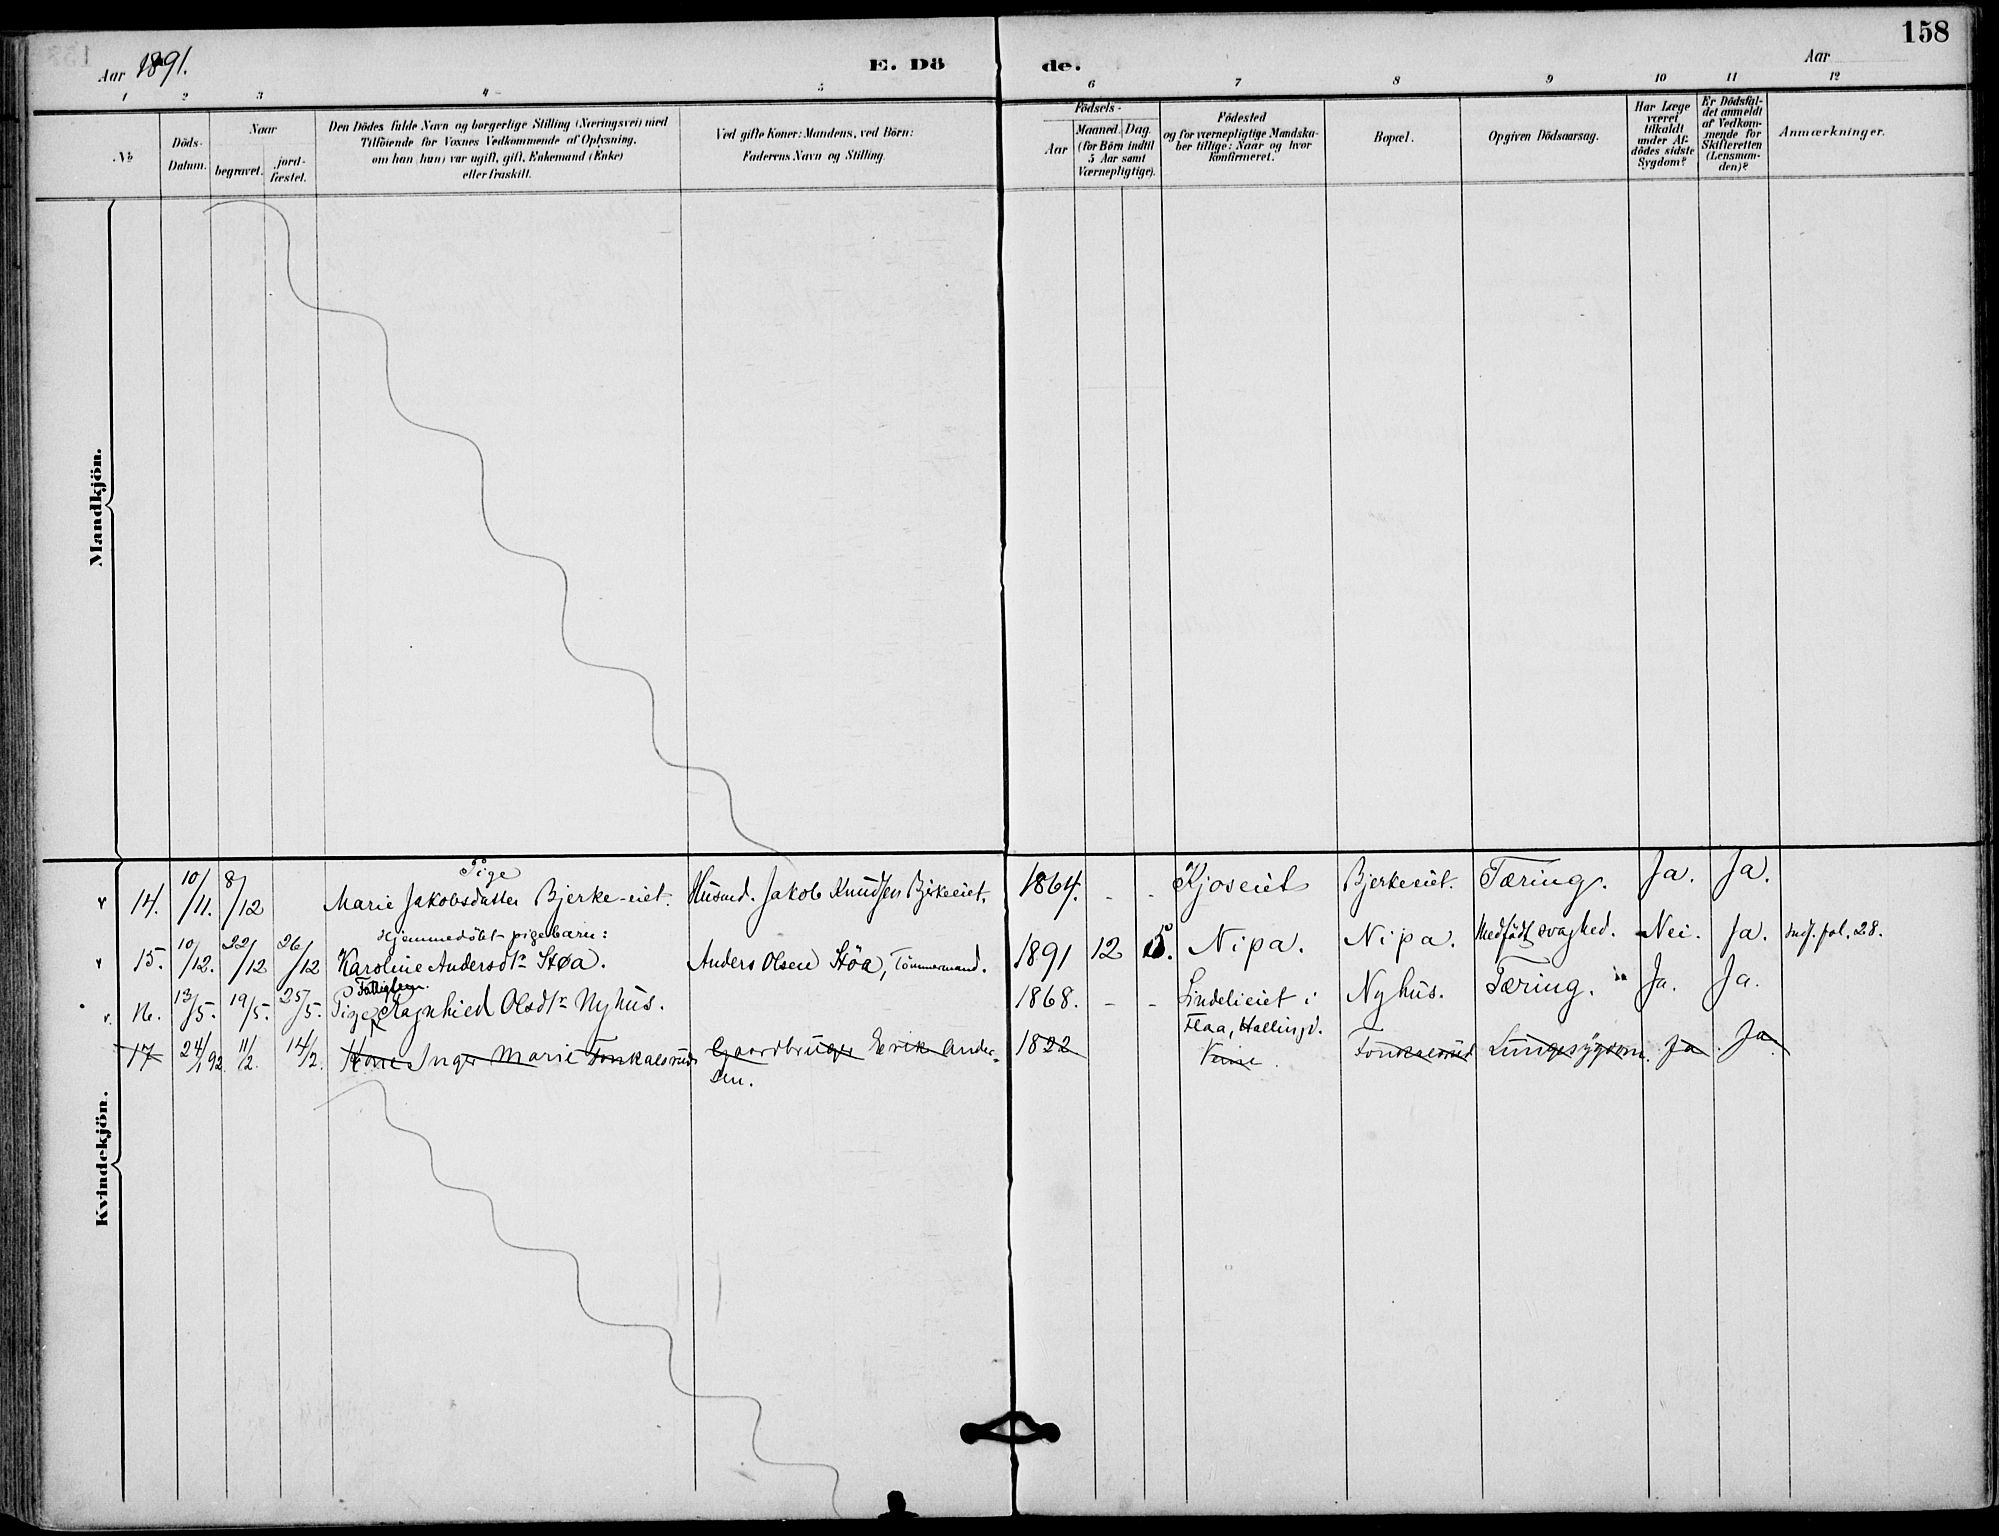 158
Aar 1891.
E. Dö
de.
Aar
1 2 3 4 5 6 7 8 9 10 11 12
№
Döds-
Datum.
Naar
begravet.
jord-
fæstet.
Den Dödes fulde Navn og borgerlige Stilling (Næringsvei) med
Tilföiende for Voxnes Vedkommende af Oplysning,
om han (hun) var ugift, gift, Enkemand (Enke)
eller fraskilt.
Ved gifte Koner: Mandens, ved Börn:
Faderens Navn og Stilling.
Födsels-
Aar
Maaned.
Dag.
(for Börn indtil
5 Aar samt
Værnepligtige).
Födested
og for værnepligtige Mandska-
ber tillige: Naar og hvor
konfirmeret.
Bopæl.
Opgiven Dödsaarsag.
Har Læge
været
tilkaldt
under Af-
dödes sidste
Sygdom?
Er Dödsfal-
det anmeldt
af Vedkom-
mende for
Skifteretten
(Lensman-
den)?
Anmærkninger.
Mandkjön.
Kvindekjön.
Pige
14. 10/11. 8/12 Marie Jakobsdatter Bjerke-eiet. Husmd. Jakob Knudsen Bjerkeeiet. 1864. - - Kjoseiet Bjerkeeiet. Tæring. Ja. Ja.
Hjemmedöbt pigebarn:
15. 10/12. 22/12 26/12 Karoline Andersdtr Støa. Anders Olsen Stöa, Tömmermand. 1891 12 5. Nipa. Nipa. Medfödt svaghed. Nei. Ja. Indf. fol. 28.
Fattiglem.
16. 13/5. 19/5. 25/5. Pige Ragnhied Olsdtr Nyhus. 1868. - - Lindelieiet i Nyhus. Tæring. Ja. Ja.
Flaa, Hallingd.
17 24/1 92. 11/2. 14/2. Kone Inger Marie Fonkalsrud Gaardbruger Erik Ander- 1822 Fonkalsrud Lungesygdom. Ja. Ja.
sen.